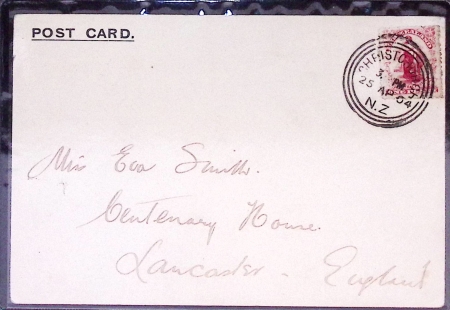 POST CARD.
CHRISTCH
3 PM
25 AP 04
N.Z
Miss Eva Smith.
Centenary House.
Lancaster - England